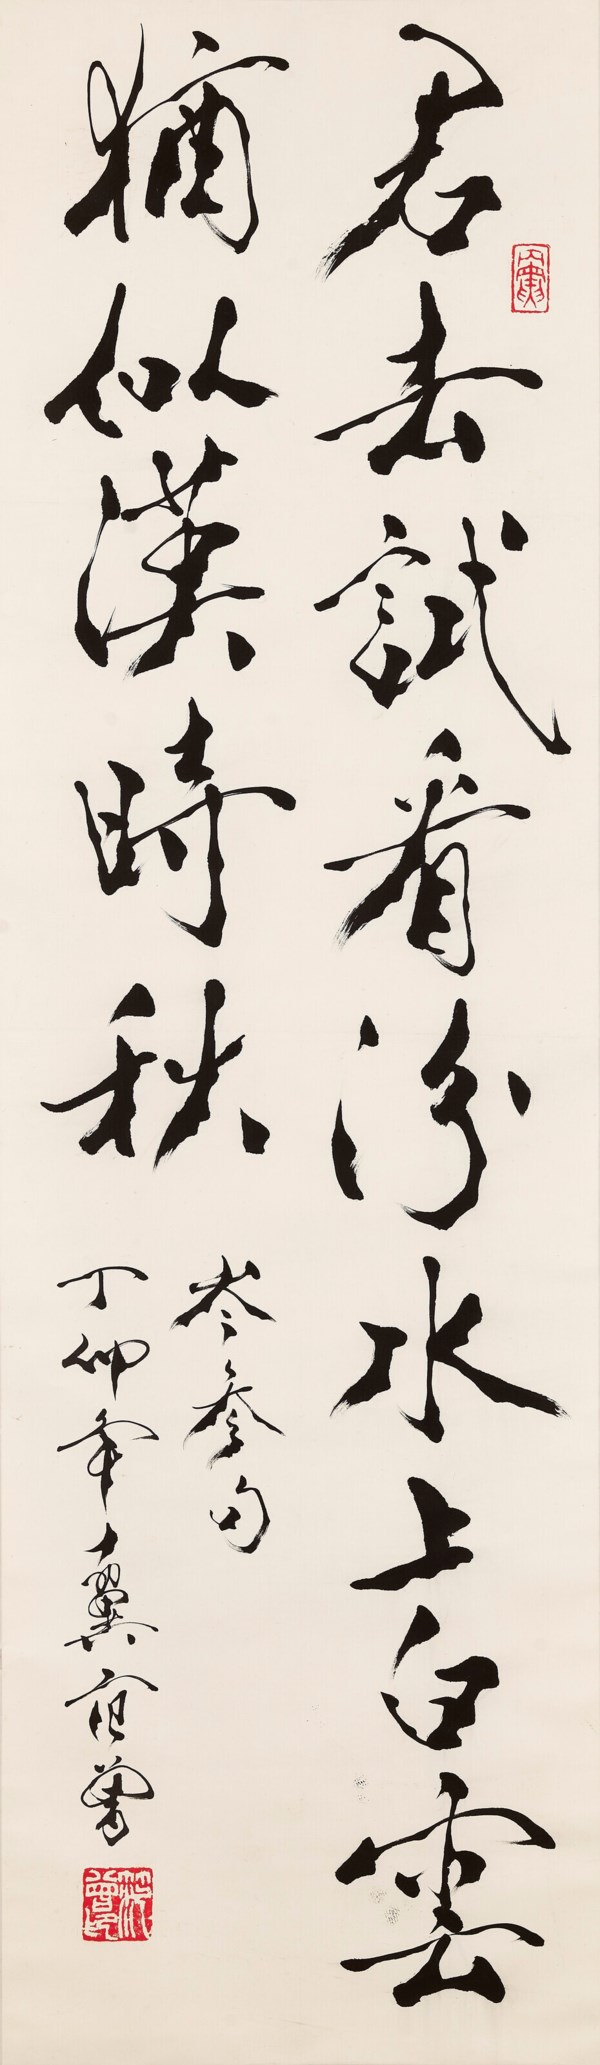 君去試看汾水上白雲
猶似漢時秋
岑參句
丁卯年十翼范曾